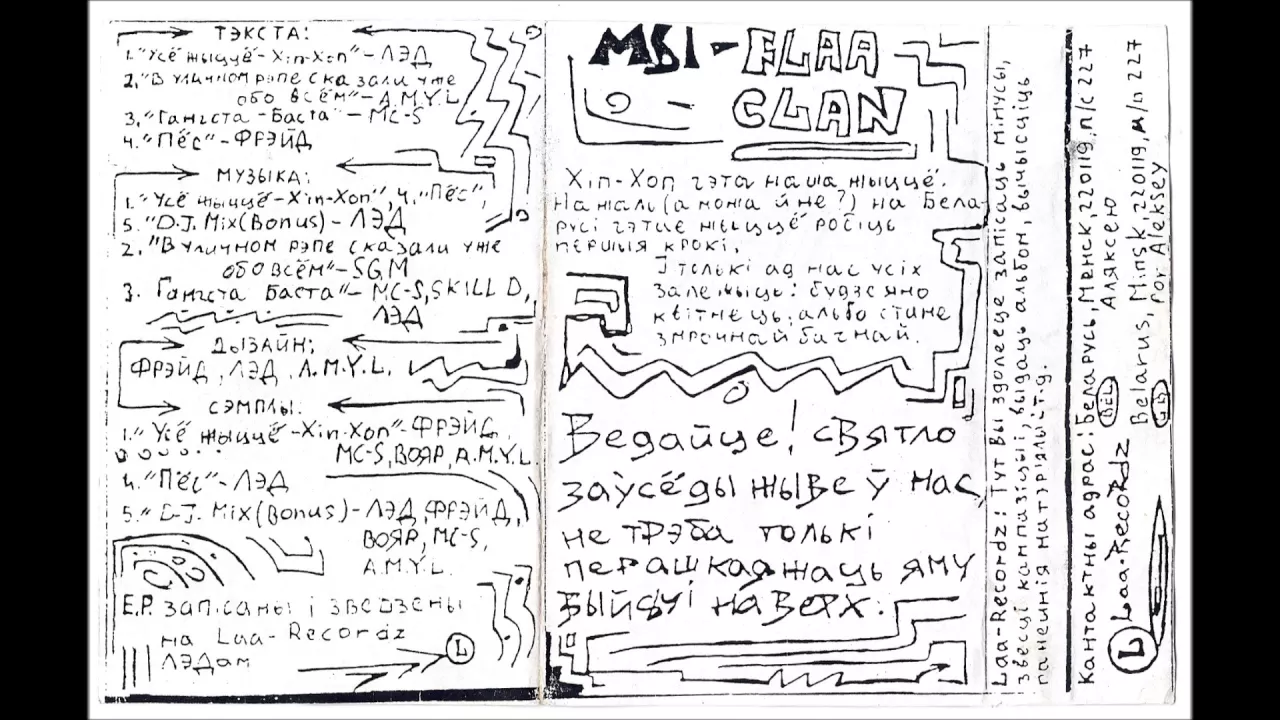 ТЭКСТА:
1. "Усё жыццё - Хіп-Хоп" - ЛЭД
2. "В уличном рэпе сказали уже
обо всём" - A.M.Y.L.
3. "Гангста - Баста" - MC-S
4. "Пёс" - ФРЭЙД
МУЗЫКА:
1. "Усё жыццё - Хіп-Хоп", 4. "Пёс",
5. "D.J. Mix (Bonus) - ЛЭД
2. "В уличном рэпе сказали уже
обо всём" - SGM
3. Гангста Баста" - MC-S, SKILL D,
ЛЭД
ДЫЗАЙН:
ФРЭЙД, ЛЭД, A.M.Y.L.
СЭМПЛЫ:
1. "Усё жыццё - Хіп-Хоп" - ФРЭЙД,
MC-S, ВОЯР, A.M.Y.L.
4. "Пёс" - ЛЭД
5. "D.J. Mix (Bonus) - ЛЭД, ФРЭЙД,
ВОЯР, MC-S,
A.M.Y.L.
E.P. запісаны і зведзены
на Laa-Recordz
ЛЭДам
L
MSI-FLAA
CLAN
Хіп-Хоп гэта наша жыццё.
На жаль (а можа й не?) на Бела
русі гэтае жыццё росіць
першыя крокі.
І толькі ад нас усіх
залежыць: будзе яно
квітнець, альбо стане
змрочнай бачнай.
Ведайце! святло
заўсёды жыве ў нас,
не трэба толькі
перашкаджаць яму
выйсці наверх.
Laa-Recordz: Тут Вы здолееце запісаць мінусы,
звесці кампазіцыі, выдаць альбом, вычысціць
ганеппія матэрыялы і т.д.
Кантактны адрас: Беларусь, Менск, 220119, п/с 227
(BEL) Аляксею
Belarus, Minsk, 220119, м/п 227
For Aleksey
L Laa-Recordz